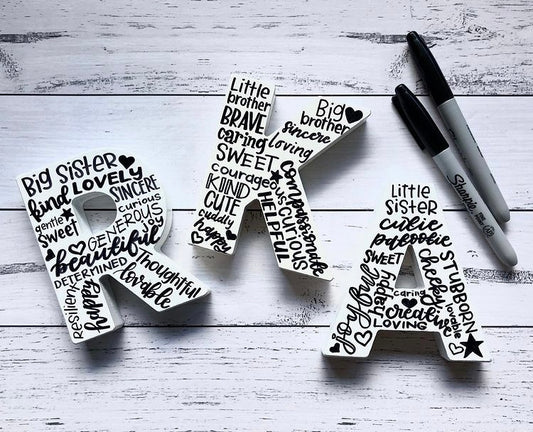 Big Sister
kind LOVELY
SINCERE
gentle
curious
SWEET
GENEROUS
beautiful
DETERMINED
Thoughtful
Resilient
happy
lovable
Little
brother
BRAVE
caring
SWEET
courageous
KIND
CUTE
cuddly
happy
Big
brother
sincere
loving
compassionate
CURIOUS
HELPFUL
Little
Sister
cutie
patootie
SWEET
cheeky
STUBBORN
joyful
happy
caring
creative
lovable
LOVING
Sharpie